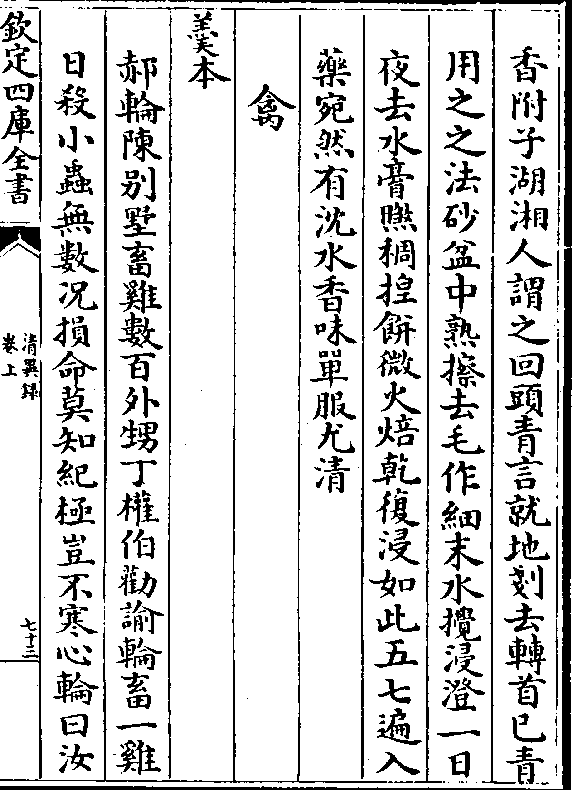 香附子湖湘人謂之回頭青言就地剗去轉首已青
用之之法砂盆中熟擦去毛作細末水攪浸澄一日
夜去水膏熬稠捏餅微火焙乾復浸如此五七遍入
藥宛然有沈水香味單服尤清
禽
羹本
郝輪陳别墅畜雞數百外甥丁權伯勸諭輪畜一雞
日殺小蟲無數况損命莫知紀極豈不寒心輪曰汝
欽定四庫全書
清異録
卷上
七十三